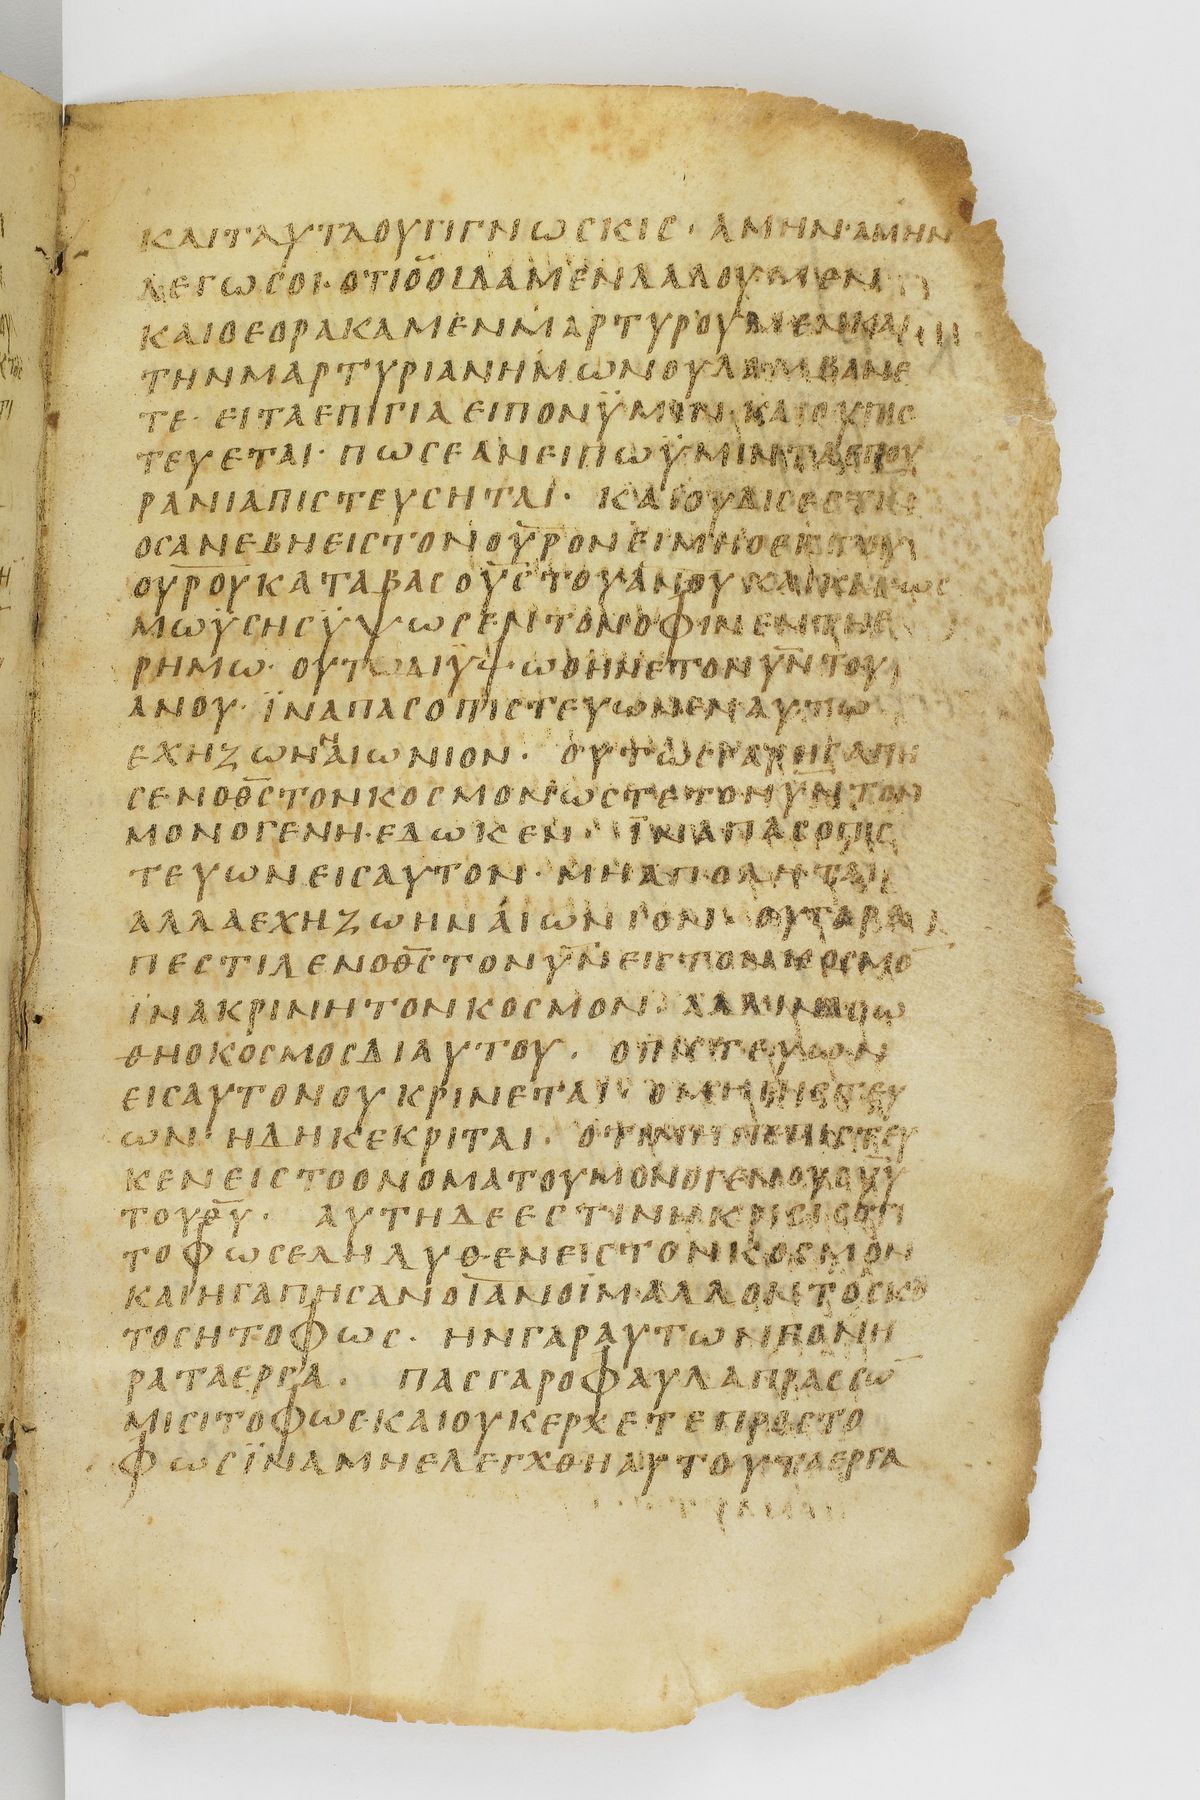 ΚΑΙΤΑΥΤΑΟΥΓΙΓΝΩϹΚΙϹ· ΑΜΗΝ·ΑΜΗΝ
ΛΕΓΩϹΟΙ·ΟΤΙΟΟΙΔΑΜΕΝΛΑΛΟΥΜΕΝ
ΚΑΙΟΕΟΡΑΚΑΜΕΝΜΑΡΤΥΡΟΥΜΕΝΚΑΙ
ΤΗΝΜΑΡΤΥΡΙΑΝΗΜΩΝΟΥΛΑΜΒΑΝΕ
ΤΕ· ΕΙΤΑΕΠΙΓΙΑΕΙΠΟΝΫΜΙΝ ΚΑΙΟΥΠΙϹ
ΤΕΥΕΤΑΙ· ΠΩϹΕΑΝΕΙΠΩΫΜΙΝΤΑΕΠΟΥ
ΡΑΝΙΑΠΙϹΤΕΥϹΗΤΑΙ· ΚΑΙΟΥΔΙϹΕϹΤΙΝ
ΟϹΑΝΕΒΗΕΙϹΤΟΝΟΥ̅Ρ̅ΟΝΕΙΜΗΟΕΚΤΟΥ
ΟΥ̅Ρ̅ΟΥΚΑΤΑΒΑϹΟΥ̅Ϲ̅ΤΟΥΑΝ̅ΟΥ ΚΑΙΚΑΘΩϹ
ΜΩΫϹΗϹΫΨΩϹΕΝΤΟΝΟΦΙΝΕΝΤΗΕ
ΡΗΜΩ· ΟΥΤΩΔΙΫΨΩΘΗΝΕΤΟΝΥ̅Ν̅ΤΟΥ
ΑΝΟΥ· ΪΝΑΠΑϹΟΠΙϹΤΕΥΩΝΕΝΑΥΤΩ
ΕΧΗΖΩΗΝΑΙΩΝΙΟΝ· ΟΥΤΩϹΓΑΡΗΓΑΠΗ
ϹΕΝΟΘ̅Ϲ̅ΤΟΝΚΟϹΜΟΝΩϹΤΕΤΟΝΥ̅Ν̅ΤΟΝ
ΜΟΝΟΓΕΝΗ·ΕΔΩΚΕΝ· ΪΝΑΠΑϹΟΠΙϹ
ΤΕΥΩΝΕΙϹΑΥΤΟΝ· ΜΗΑΠΟΛΗΤΑΙ
ΑΛΛΑΕΧΗΖΩΗΝΑΙΩΝΙΟΝ· ΟΥΓΑΡΑ
ΠΕϹΤΙΛΕΝΟΘ̅Ϲ̅ΤΟΝΥ̅Ν̅ΕΙϹΤΟΝΚΟϹΜΟ̅
ΪΝΑΚΡΙΝΗΤΟΝΚΟϹΜΟΝ· ΑΛΛΙΝΑϹΩ
ΘΗΟΚΟϹΜΟϹΔΙΑΥΤΟΥ· ΟΠΙϹΤΕΥΩΝ
ΕΙϹΑΥΤΟΝΟΥΚΡΙΝΕΤΑΙ· ΟΜΗΠΙϹΤΕΥ
ΩΝ· ΗΔΗΚΕΚΡΙΤΑΙ· ΟΤΙΜΗΠΕΠΙϹΤΕΥ
ΚΕΝΕΙϹΤΟΟΝΟΜΑΤΟΥΜΟΝΟΓΕΝΟΥϹΥ̅Υ̅
ΤΟΥΘ̅Υ̅· ΑΥΤΗΔΕΕϹΤΙΝΗΚΡΙϹΙϹΟΤΙ
ΤΟΦΩϹΕΛΗΛΥΘΕΝΕΙϹΤΟΝΚΟϹΜΟΝ
ΚΑΙΗΓΑΠΗϹΑΝΟΙΑΝ̅Ο̅ΙΜΑΛΛΟΝΤΟϹΚΟ
ΤΟϹΗΤΟΦΩϹ· ΗΝΓΑΡΑΥΤΩΝΠΟΝΗ
ΡΑΤΑΕΡΓΑ· ΠΑϹΓΑΡΟΦΑΥΛΑΠΡΑϹϹΩ̅
ΜΙϹΙΤΟΦΩϹ·ΚΑΙΟΥΚΕΡΧΕΤΕΠΡΟϹΤΟ
ΦΩϹΪΝΑΜΗΕΛΕΓΧΘΗΑΥΤΟΥΤΑΕΡΓΑ